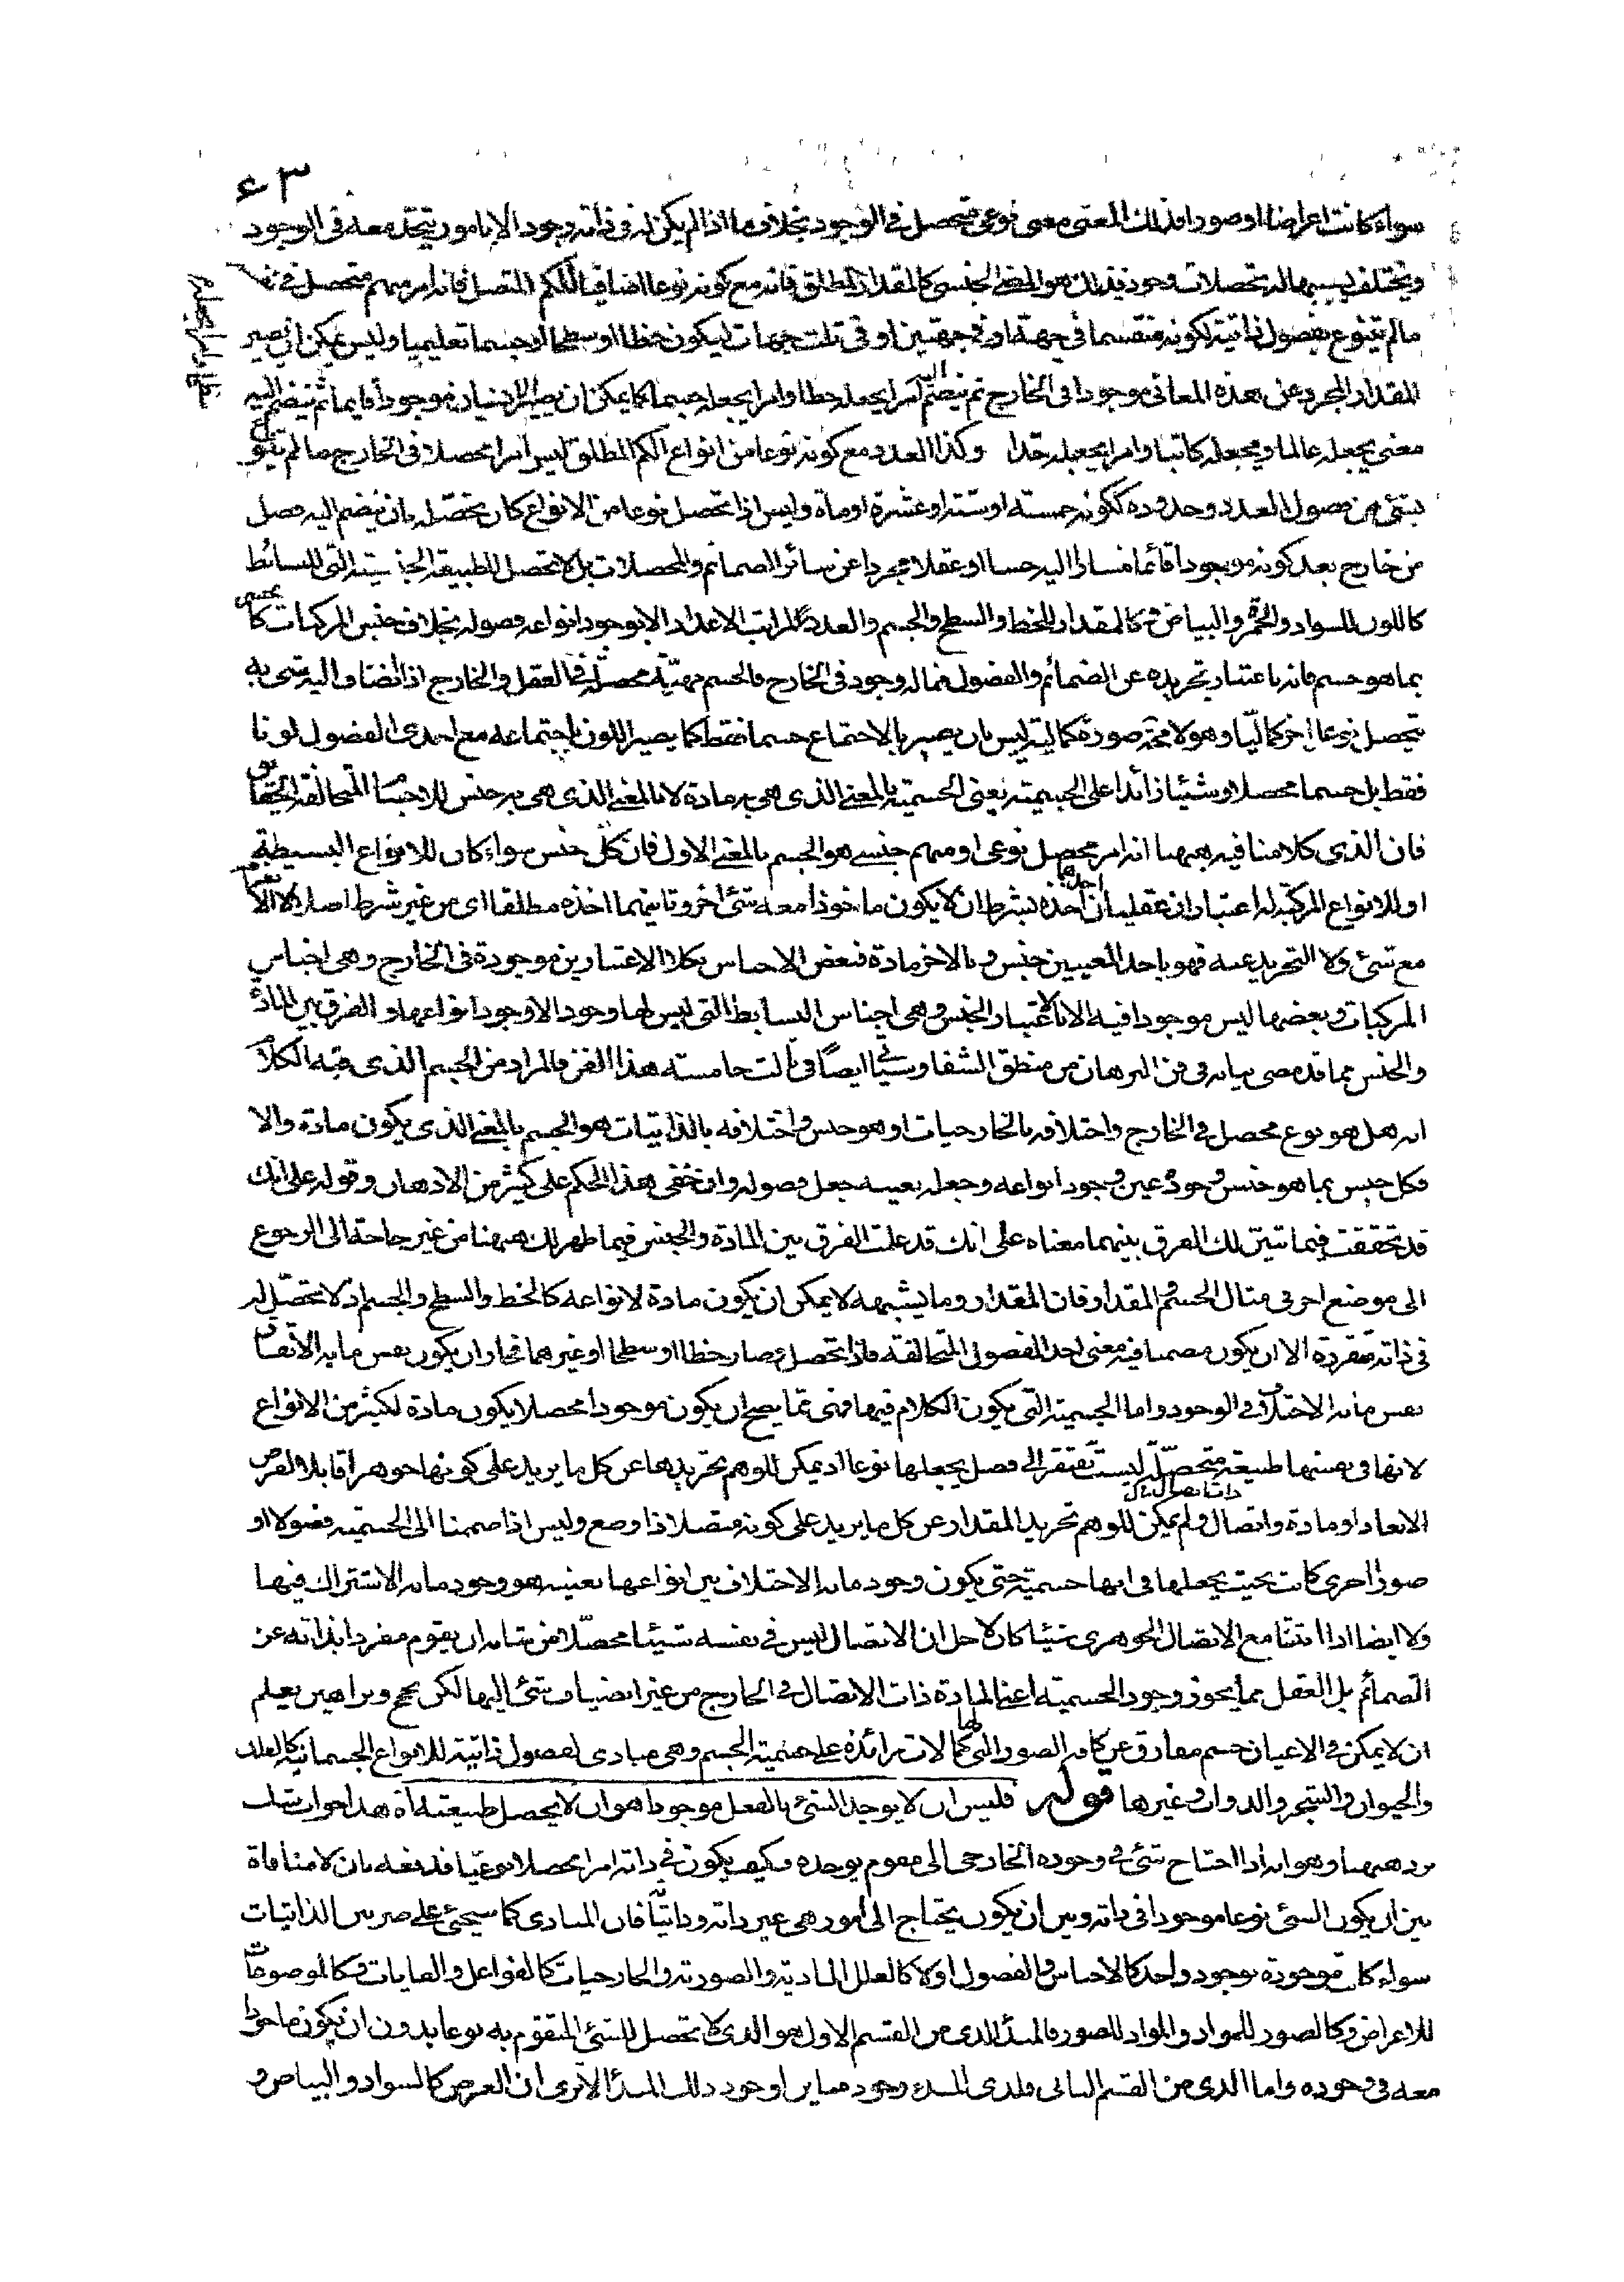 ٦٣
سواء كانت اعراضا او صورا فذلك المعنى معنى نوعى متحصل فى الوجود بخلاف ما اذا لم يكن له فى ذاته وجود الا بامور يتحد معه فى الوجود
ويختلف بسببها له تحصلات وجود فذلك هو المعنى الجنسى كالمقدار المطلق فانه مع كونه نوعا اضافيا للكم المتصل فانه امر مبهم متحصل فى
مالم يتنوع بفصول ذاتية لكونه منقسما فى جهة او فى جهتين او فى ثلث جهات ليكون خطا او سطحا او جسما تعليميا وليس يمكن ان يصير
المقدار المجرد عن هذه المعانى موجودا فى الخارج ثم ينضم اليه امر يجعله خطا وامر يجعله جسما كما يمكن ان يصير الانسان موجودا قايما ثم ينضم اليه
معنى يجعله عالما ويجعله كاتبا وامر يجعله وكذا العدد مع كونه نوعا من انواع الكم المطلق ليس امرا محصلا فى الخارج ما لم يتنوع
بشئ من فصول العدد وحدوده ككونه خمسة او ستة او عشرة او مأة وليس اذا تحصل نوعا من الانواع كان تحصّله بان ينضم اليه فصل
من خارج بعد كونه موجودا قائما مشارا اليه حسا او عقلا مجردا عن سائر الضمائم والمحصلات بل لا تحصل للطبيعة الجنسية التى للبسائط
كاللون للسواد والحمرة والبياض وكالمقدار للخط والسطح والجسم والعدد لمراتب الاعداد الا بوجود انواعه وفصوله بخلاف جنس المركبات كالجسم
بما هو جسم فانه باعتبار تجريده عن الضمائم والفصول فما له وجود فى الخارج فالجسم مهيّة محصّلة فى العقل والخارج اذا انضاف اليه شئ به
تحصل نوعا اخر كماليّا وهو لا محة صورة كمالية ليس بان يصير بالاجتماع جسما فقط كما يصير اللون باجتماعه مع احدى الفصول لونا
فقط بل جسما محصلا وشيئا زائدا على الجسمية نعنى الجسمية بالمعنى الذى هى به مادة لا بالمعنى الذى هى به جنس للاجسام المتخالفة الحقايق
فان الذى كلامنا فيه ههنا انه امر محصل نوعى او مبهم جنسى هو الجسم بالمعنى الاول فان كلّ جنس سواء كان للانواع البسيطة
او للانواع المركبة له اعتباران عقليان احدهما اخذه بشرط ان لا يكون ماخوذا معه شئ اخر وثانيهما اخذه مطلقا اى من غير شرط اصلا
مع شئ ولا التجريد عنه فهو باحد المعنيين جنس وبالاخر مادة فبعض الاجناس بكلا الاعتبارين موجودة فى الخارج وهى اجناس
المركبات وبعضها ليس موجودا فيه الا باعتبار الجنس وهى اجناس البسايط التى ليس لها وجود الا وجود انواعها والفرق بين المادة
والجنس مما قد مضى بيانه فى فن البرهان من منطق الشفا وسيأتى ايضا فى ثالث خامسة هذا الفن فالمراد من الجسم الذى فيه الكلام
انه هل هو نوع محصل فى الخارج واختلافه بالخارجيات او هو جنس واختلافه بالذاتيات هو الجسم بالمعنى الذى يكون مادة والا
فكل جنس بما هو جنس وجوده عين وجود انواعه وجعله بعينه جعل فصوله وان خفى هذا الحكم على كثير من الاذهان وقوله على انك
قد تحققت فيما تبيّن لك الفرق بينهما معناه على انك قد علمت الفرق بين المادة والجنس فيما ظهر لك ههنا من غير حاجة الى الرجوع
الى موضع اخر فى مثال الجسم والمقدار فان المقدار وما يشبهه لا يمكن ان يكون مادة لانواعه كالخط والسطح والجسم اذ لا تحصّل له
فى ذاته متقررة الا ان يكون مضمنا فيه معنى احد الفصول المتخالفة فاذا تحصل وصار خطا او سطحا او غيرهما فجاز ان يكون نفس ما به الاتفاق
نفس ما به الاختلاف فى الوجود واما الجسمية التى يكون الكلام فيها فهى مما يصح ان يكون موجودا محصلا يكون مادة لكثير من الانواع
لانها فى نفسها طبيعة متحصّلة ليست تفتقر الى فصل يجعلها نوعا اذ يمكن للوهم تجريدها عن كل ما يزيد على كونها جوهرا قابلا لفرض
الابعاد او مادة واتصال ولم يمكن للوهم تجريد المقدار عن كل ما يزيد على كونه متصلا ذا وضع وليس اذا ضممنا الى الجسمية فصولا او
صورا اخرى كانت بحيث يجعلها فى انها جسمية حتى يكون وجود ما به الاختلاف بين انواعها بعينه هو وجود ما به الاشتراك فيها
ولا ايضا اذا اثبتنا مع الاتصال الجوهرى شيئا كان لاجل ان الاتصال ليس فى نفسه شيئا محصّلا من شانه ان يقوم مفردا بذاته عن
الضمائم بل العقل مما يجوز وجود الجسمية اعنى المادة ذات الاتصال فى الخارج من غير انضياف شئ اليها لكن بحجج وبراهين يعلم
ان لا يمكن فى الاعيان جسم مفارق عن كافة الصور التى لها كمالات زائدة على جسمية الجسم وهى مبادى لفصول ذاتية للانواع الجسمانية كالفلك
والحيوان والشجر والدواب وغيرها قوله فليس ان لا يوجد الشئ بالفعل موجودا هو ان لا يحصل طبيعته اة هذا جواب شك
يرد ههنا وهو انه اذا احتاج شئ فى وجوده الخارجى الى مقوم يوجده فكيف يكون فى ذاته امرا محصلا نوعيّا فدفعه بان لا منافاة
بين ان يكون الشئ نوعا موجودا فى ذاته وبين ان يكون يحتاج الى امور هى غير ذاته وذاتيّاته فان المبادى كما سيجئ على ضربين الذاتيات
سواء كانت موجودة بوجود واحد كالاجناس والفصول اولا كالعلل المادية والصورية والخارجيات كالفواعل والغايات وكالموضوعات
للاعراض وكالصور للمواد والمواد للصور فالمبدأ الذى من القسم الاول هو الذى لا تحصل للشئ المتقوم به نوعا بدون ان يكون ماخوذا
معه فى وجوده واما الذى من القسم الثانى فلذى المبدء وجود مغاير لوجود ذلك المبدأ الا ترى ان العرض كالسواد والبياض و